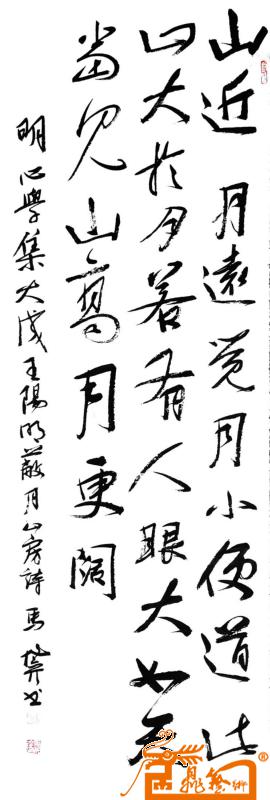 山近月遠覺月小便道此
山大於月若有人眼大如天
當見山高月更闊
明心學集大成王陽明蔽月山房詩 馬 书